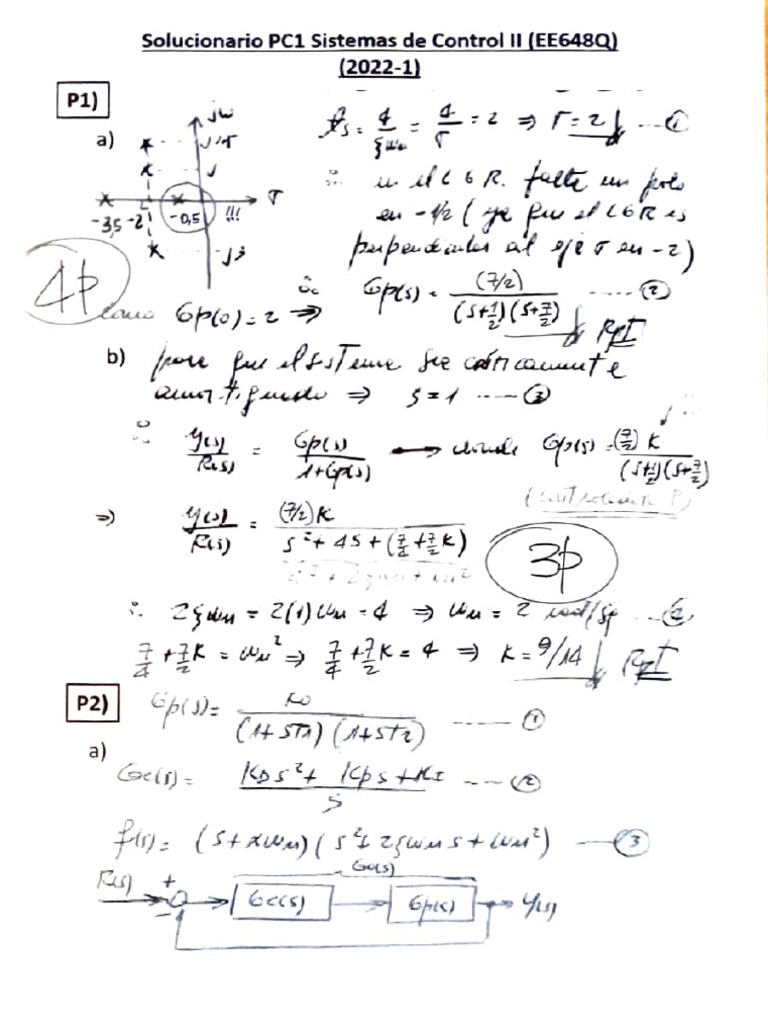 Solucionario PC1 Sistemas de Control II (EE648Q)
(2022-1)
P1)
a)
jω
j
σ
-3,5 -2 -0,5 !!!
-j3
ts = 4/ξωn = 4/σ = 2 ⇒ σ = 2 ---- ①
∴ en el LGR. falta un polo
en -1/2 (ya que el LGR es
perpendicular al eje σ en -2)
4p
como Gp(0) = 2 ⇒ ∴ Gp(s) = (7/2)/((s+1/2)(s+7/2)) ------ ②
RpI
b) para que el sistema sea críticamente
amortiguado ⇒ ξ = 1 ---- ③
∴ Y(s)/R(s) = Gp(s)/(1+Gp(s)) → donde Gp(s) = (7/2)K/((s+1/2)(s+7/2))
(controlador P)
⇒) Y(s)/R(s) = (7/2)K/(s²+4s+(7/4+7/2K))
3p
∴ 2ξωn = 2(1)ωn = 4 ⇒ ωn = 2 rad/sg
7/4 + 7/2K = ωn² ⇒ 7/4 + 7/2K = 4 ⇒ K = 9/14 RpI
P2)
Gp(s) = K0/((1+ST1)(1+ST2)) ------ ①
a)
Gc(s) = (KDs²+Kps+KI)/s --- ②
f(s) = (s+αωn)(s²+2ξωns+ωn²) ---- ③
G0(s)
R(s) + - Gc(s) Gp(s) Y(s)